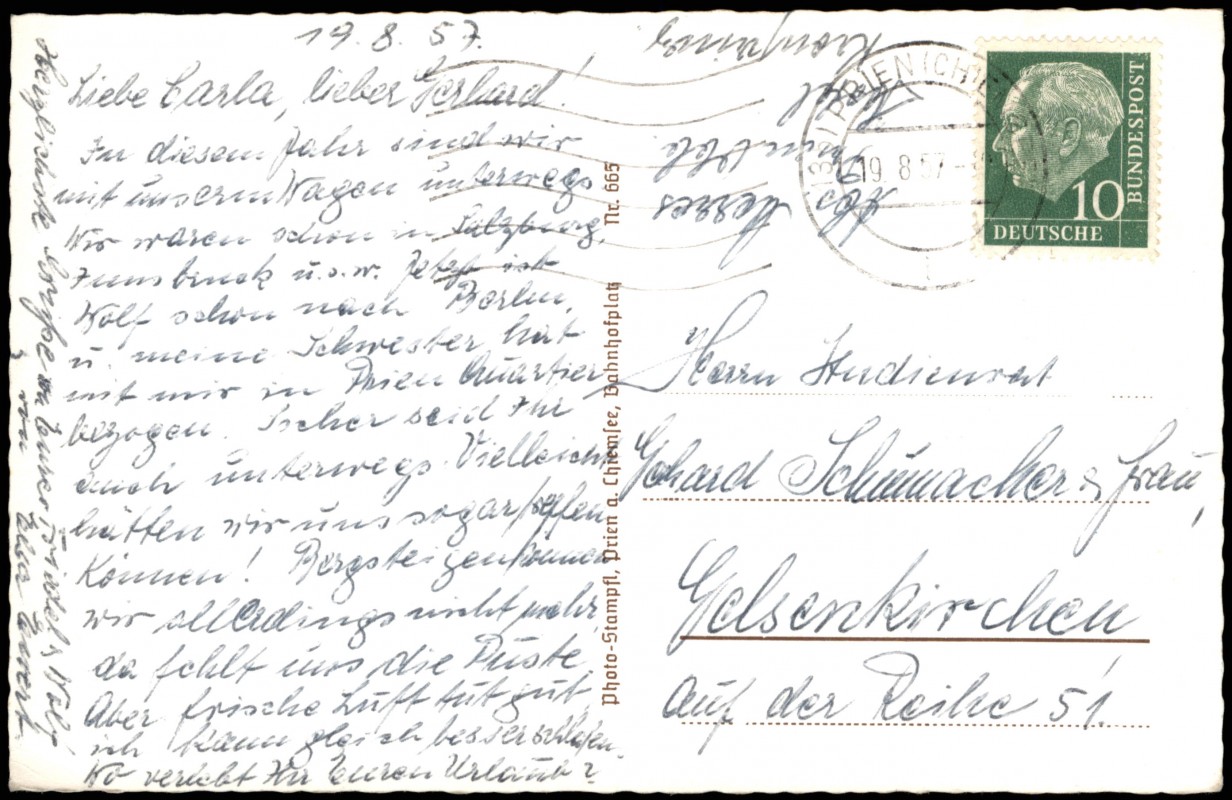 19. 8. 57.
Liebe Carla, lieber Gerhard!
In diesem Jahr sind wir
mit unserm Wagen unterwegs.
Wir waren schon in Salzburg,
Innsbruck u.s.w. Jetzt ist
Wolf schon nach Berlin,
u. meine Schwester hat
mit mir in Prien Quartier
bezogen. Sicher seid Ihr
auch unterwegs. Vielleicht
hätten wir uns sogar treffen
können! Bergsteigen können
wir allerdings nicht mehr,
da fehlt uns die Puste.
Aber frische Luft tut gut
ich kann gleich besser schlafen.
Wo verlebt Ihr Euren Urlaub?
Herzlichste Grüße von Eurer Friedel & Wolf
u. von Elsa
Photo-Stampfl, Prien a. Chiemsee, Bahnhofplatz Nr. 665
PRIEN (CHIEMSEE)
19. 8. 57
10
DEUTSCHE
BUNDESPOST
Herrn Studienrat
Gehard Schumacher & Frau,
Gelsenkirchen
Auf der Reihe 51.